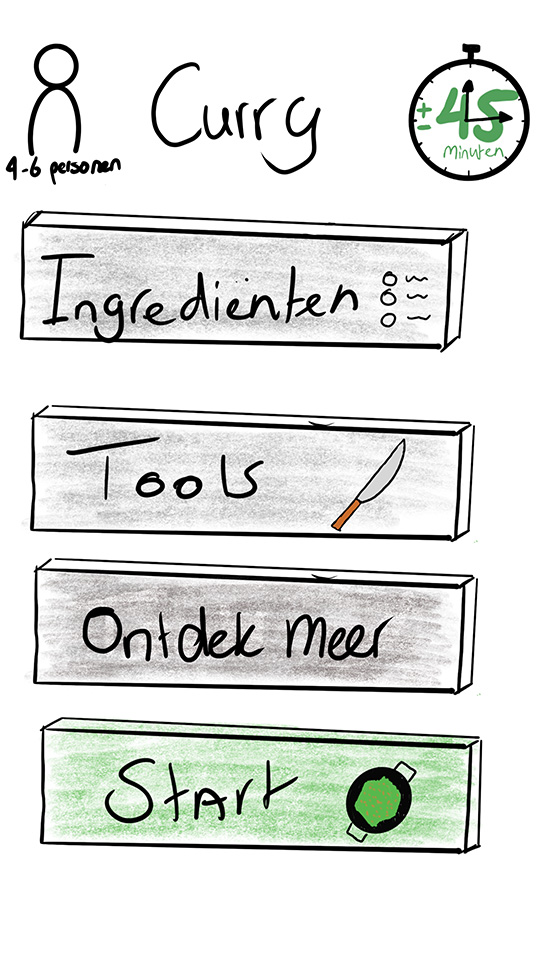 Curry
4-6 personen
± 45
Minuten
Ingrediënten
Tools
Ontdek meer
Start